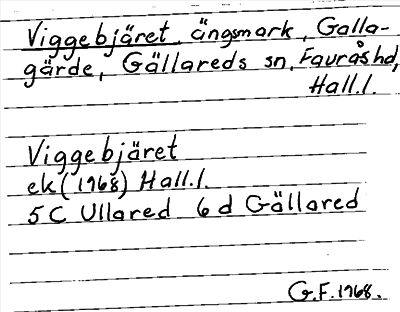 Viggebjäret. ängsmark, Galla-
gärde, Gällareds sn, Faurås hd,
Hall.l.
Viggebjäret
ek (1968) Hall.l.
5C Ullared 6d Gällared
G.F. 1968.